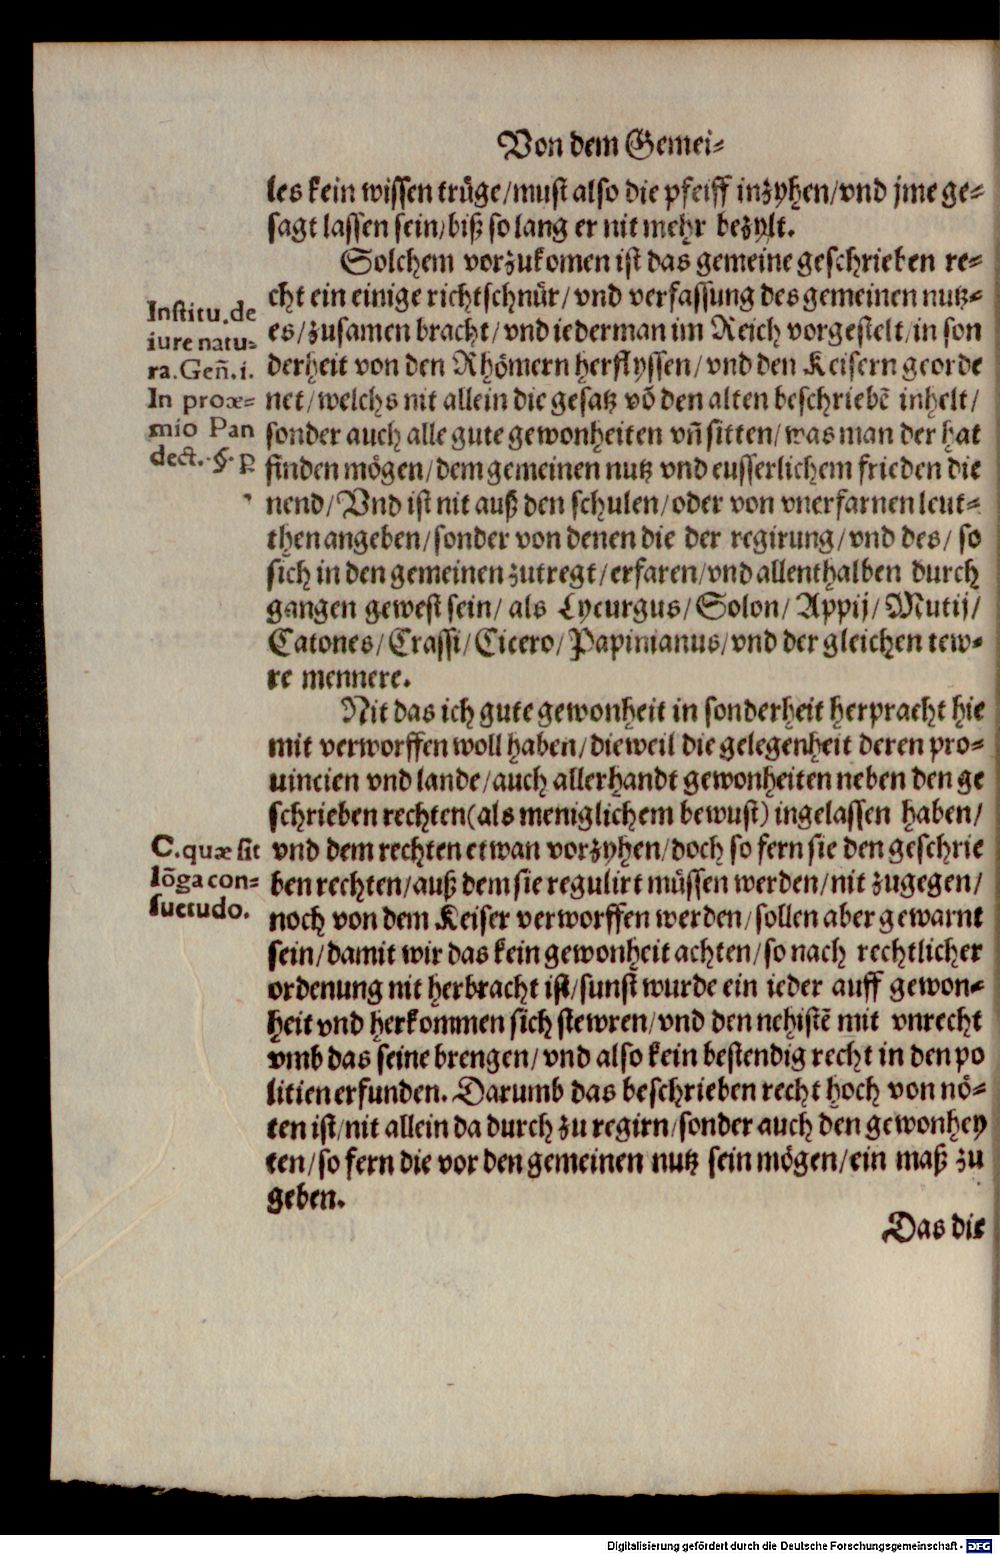 Von dem Gemei⸗
les kein wissen trüge/must also die pfeiff inzyhen/vnd jme ge⸗
sagt lassen sein/biß so lang er nit mehr bezylt.
Solchem vorzukomen ist das gemeine geschrieben re⸗
cht ein einige richtschnůr/vnd verfassung des gemeinen nutz⸗
es/zusamen bracht/vnd iederman im Reich vorgestelt/in son
derheit von den Rhömern herflyssen/vnd den Keisern georde
net/welchs nit allein die gesatz vō den alten beschriebē inhelt/
sonder auch alle gute gewonheiten vñ sitten/was man der hat
finden mögen/dem gemeinen nutz vnd eusserlichem frieden die
nend/Vnd ist nit auß den schulen/oder von vnerfarnen leut⸗
then angeben/sonder von denen die der regirung/vnd des/so
sich in den gemeinen zutregt/erfaren/vnd allenthalben durch
gangen gewest sein/als Lycurgus/Solon/Appij/Mutij/
Catones/Crassi/Cicero/Papinianus/vnd der gleichen tew⸗
re mennere.
Institu. de
iure natu⸗
ra. Geñ. i.
In proæ⸗
mio Pan
dect. §. p
Nit das ich gute gewonheit in sonderheit herpracht hie
mit verworffen woll haben/dieweil die gelegenheit deren pro⸗
uincien vnd lande/auch allerhandt gewonheiten neben den ge
schrieben rechten(als meniglichem bewust)ingelassen haben/
vnd dem rechten etwan vorzyhen/doch so fern sie den geschrie
ben rechten/auß dem sie regulirt müssen werden/nit zugegen/
noch von dem Keiser verworffen werden/sollen aber gewarnt
sein/damit wir das kein gewonheit achten/so nach rechtlicher
ordenung nit herbracht ist/sunst wurde ein ieder auff gewon⸗
heit vnd herkommen sich stewren/vnd den nehistē mit vnrecht
vmb das seine brengen/vnd also kein bestendig recht in den po
litien erfunden. Darumb das beschrieben recht hoch von nö⸗
ten ist/nit allein da durch zu regirn/sonder auch den gewonhey
ten/so fern die vor den gemeinen nutz sein mögen/ein maß zu
geben.
C. quæ sit
lōga con⸗
suetudo.
Das die
Digitalisierung gefördert durch die Deutsche Forschungsgemeinschaft - DFG